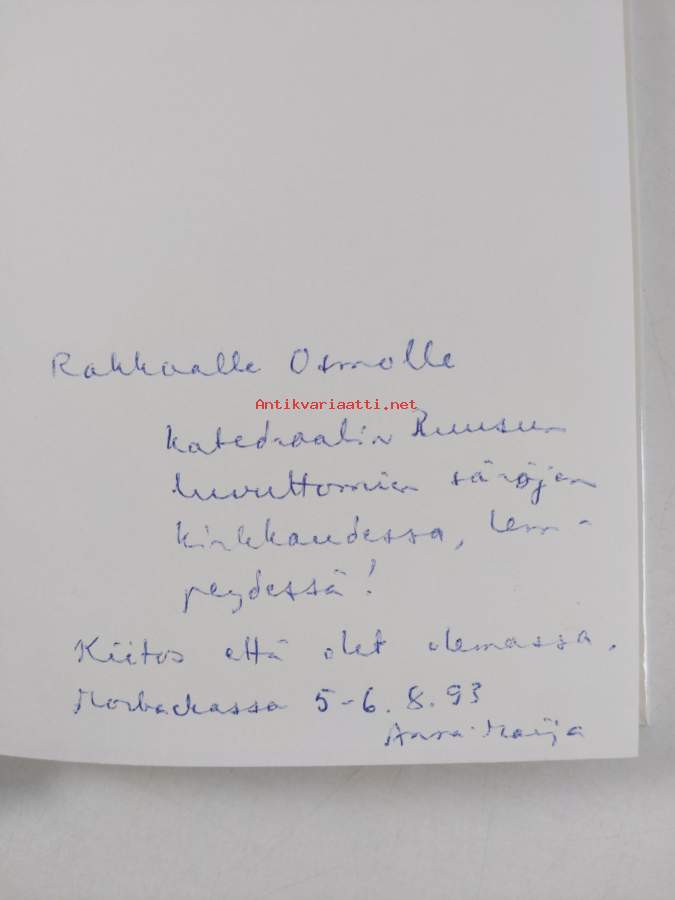 Rakkaalle Osmolle
Antikvariaatti.net
Katedraalin Ruusun
luvuttomien säröjen
kirkkaudessa, lem-
peydessä!
Kiitos että olet olemassa.
Morbackassa 5-6.8.93
Anna-Maija